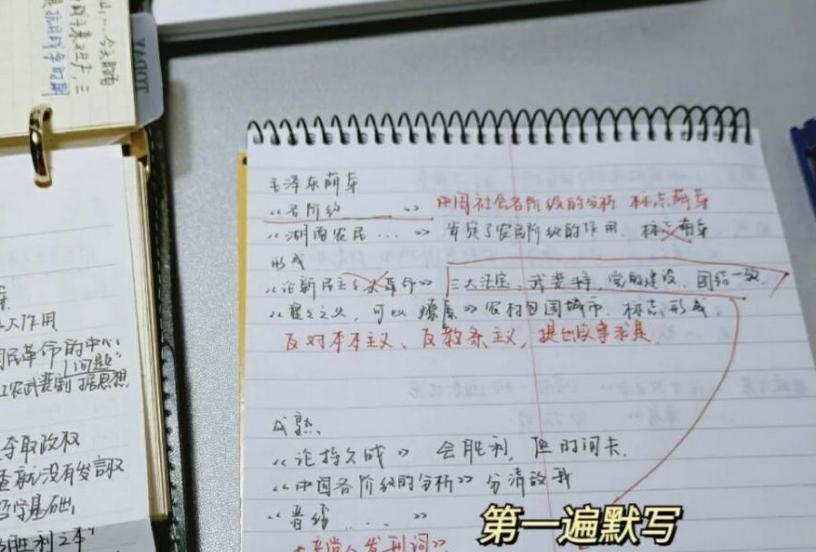 山……今天的酒
TODAY
大作用
民革命的中心
问题
工农武装割据思想
夺取政权
查就没有发言权
哲学基础
胜利之本"
毛泽东萌芽
《各阶级______》 中国社会各阶级的分析 标志萌芽
《湖南农民…》 肯定了农民阶级的作用 标志萌芽
形成
《论新民主主义革命》 三大法宝,武装斗争,党的建设、团结一致
《星之火,可以燎原》农村包围城市. 标志形成
反对本本主义、反教条主义,提出实事求是
成熟
《论持久战》 会胜利,但时间长.
《中国各阶级的分析》分清敌我
《晋绥……》
《共产党人发刊词》
第一遍默写